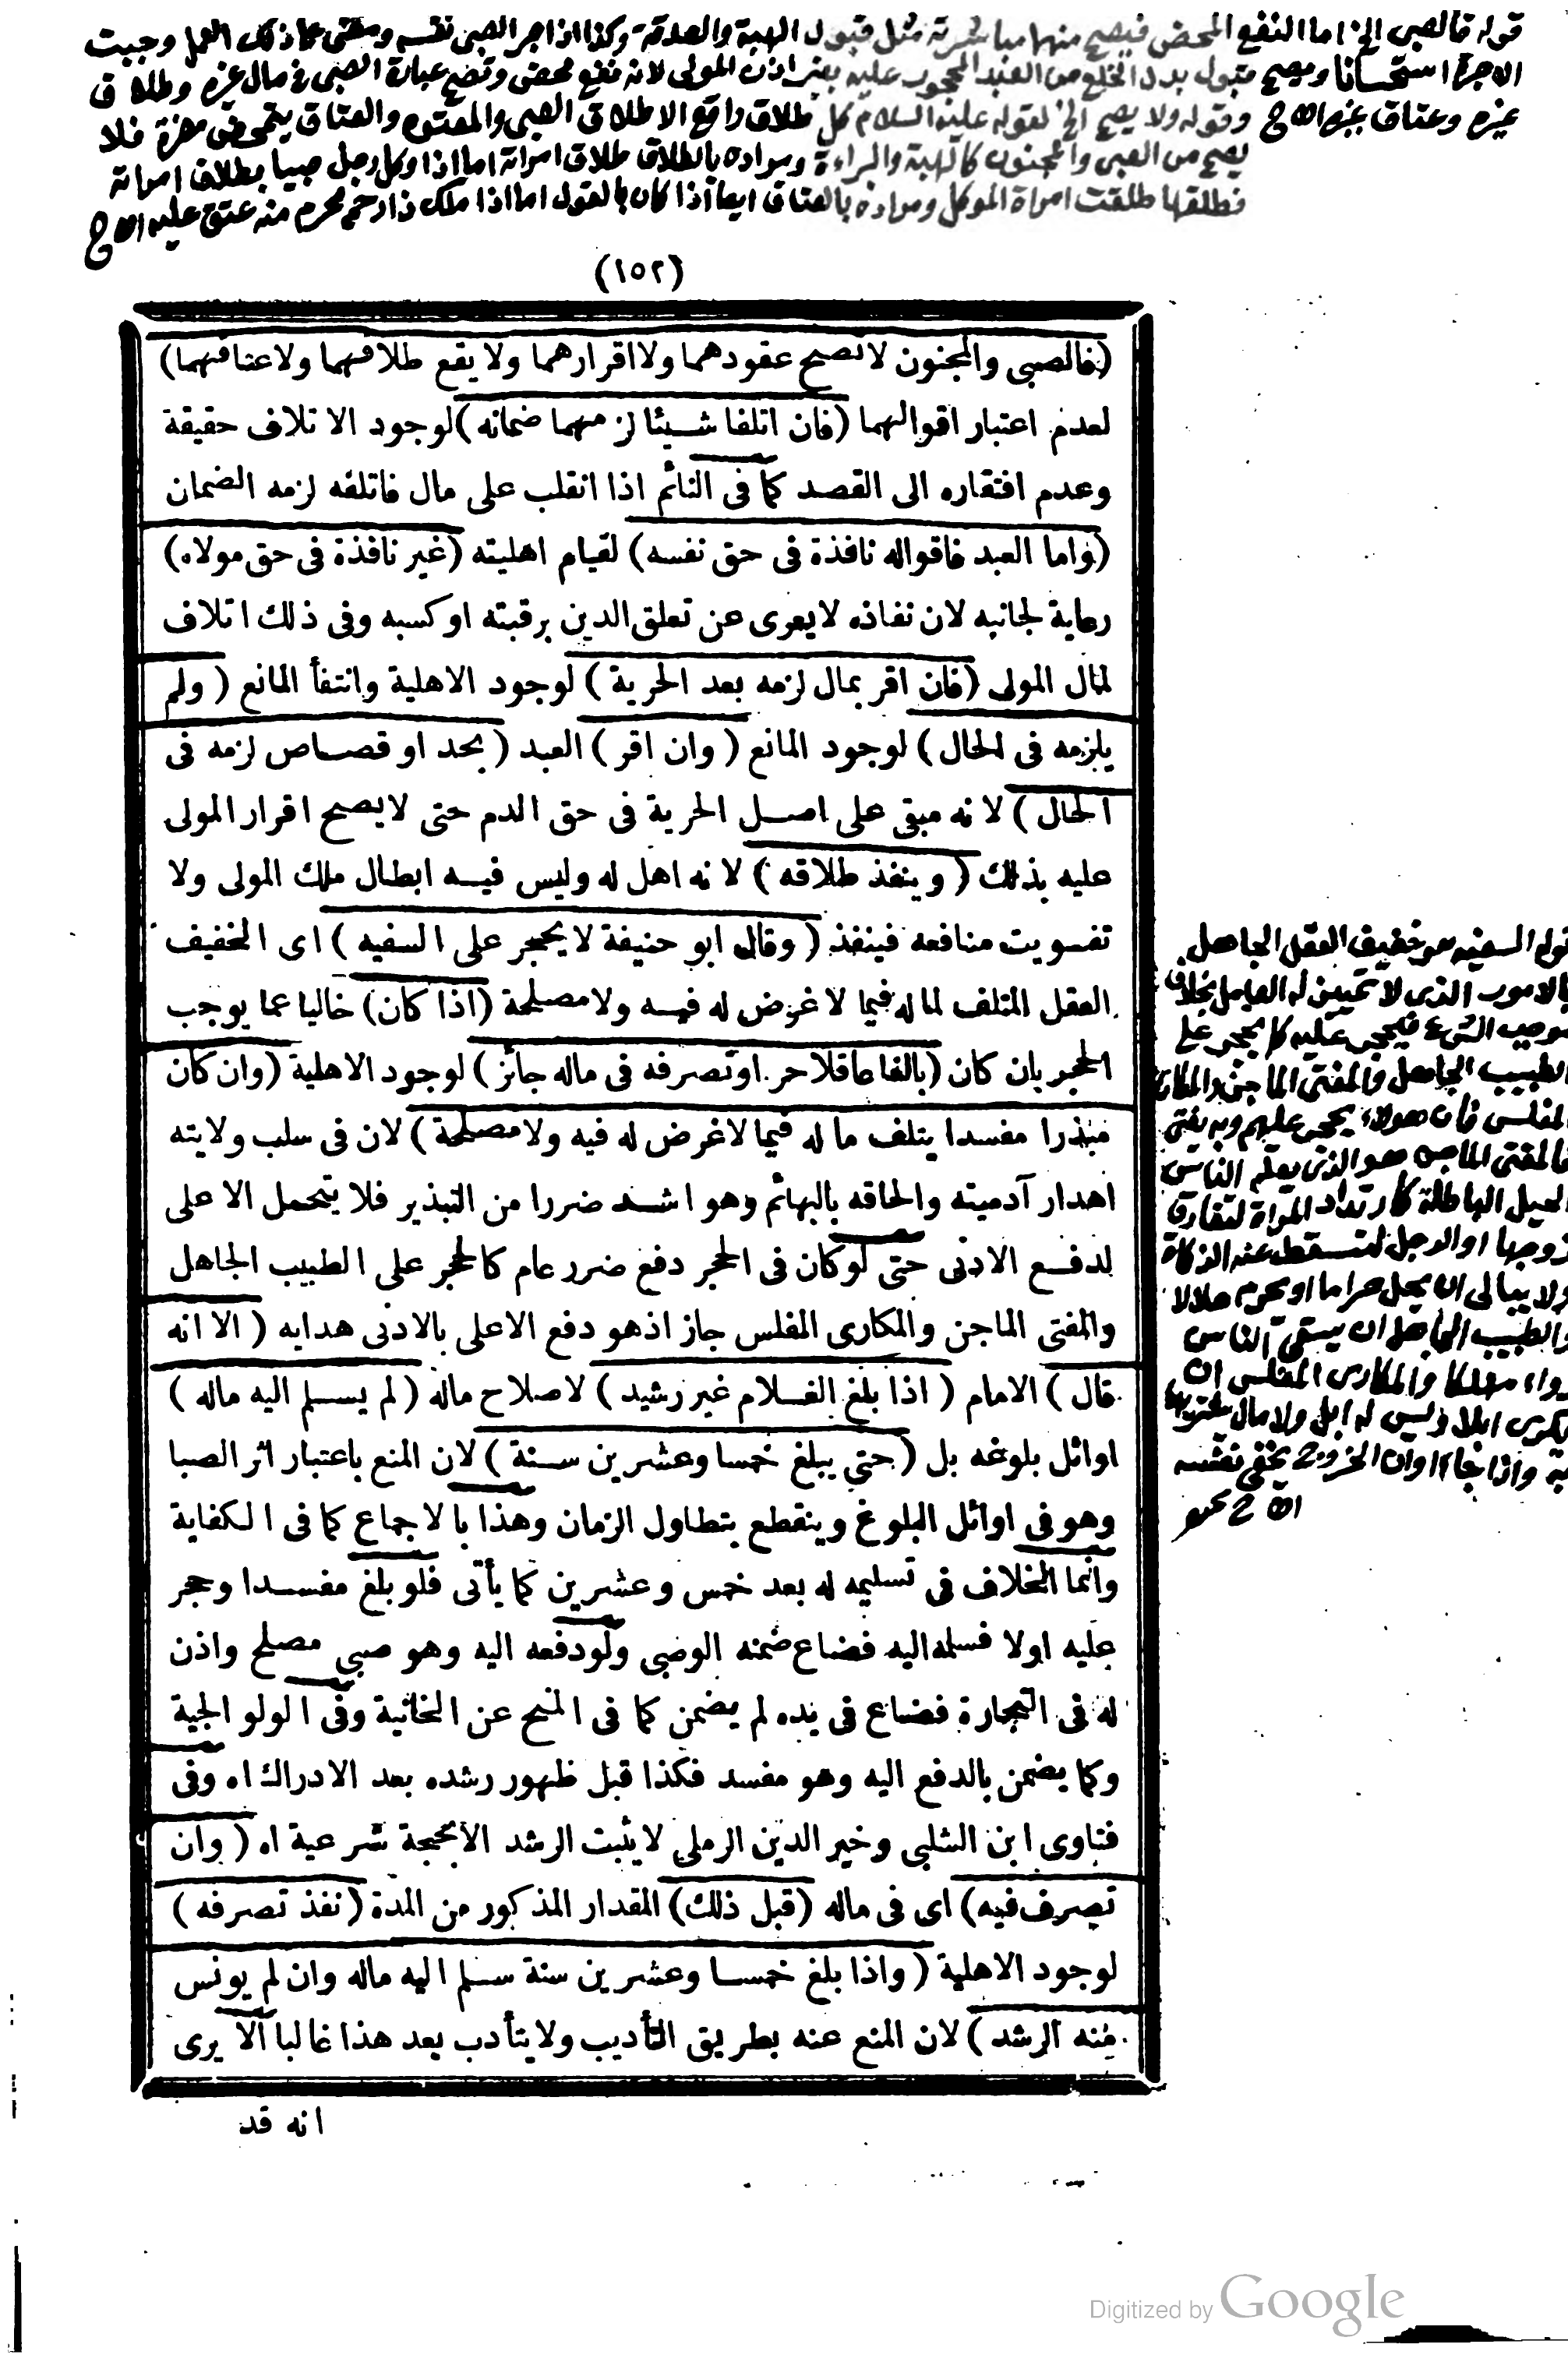 قوله فالصبى الخ اما النفع المحض فيصح منهما مباشرته مثل قبول الهبة والصدقة وكذا اذا اجر الصبى نفسه ومضى على ذلك العمل وجبت
الاجرة استحسانا ويصح قبول بدل الخلع من العبد المحجور عليه بغير اذن المولى لانه نفع محض وتصح عبارة الصبى فى مال غيره وطلاق
غيره وعتاق غيره الاح وقوله ولا يصح الخ لقوله عليه السلام كل طلاق واقع الا طلاق الصبى والمعتوه والعتاق يتمحض مضرة فلا
يصح من الصبى والمجنون كالهبة والبراءة ومراده بالطلاق طلاق امراته اما اذا وكل رجل صبيا بطلاق امراته
فطلقها طلقت امراة الموكل ومراده بالعتاق ايضا اذا كان بالقول اما اذا ملك ذا رحم محرم منه عتق عليه الاح
(١٥٢)
(فالصبى والمجنون لاتصح عقودهما ولااقرارهما ولايقع طلاقهما ولاعتاقهما)
لعدم اعتبار اقوالهما (فان اتلفا شيئا لزمهما ضمانه) لوجود الاتلاف حقيقة
وعدم افتقاره الى القصد كما فى النائم اذا انقلب على مال فاتلفه لزمه الضمان
(واما العبد فاقواله نافذة فى حق نفسه) لقيام اهليته (غير نافذة فى حق مولاه)
رعاية لجانبه لان نفاذه لايعرى عن تعلق الدين برقبته اوكسبه وفى ذلك اتلاف
لمال المولى (فان اقر بمال لزمه بعد الحرية) لوجود الاهلية وانتفأ المانع (ولم
يلزمه فى الحال) لوجود المانع (وان اقر) العبد (بحد او قصاص لزمه فى
الحال) لانه مبقى على اصل الحرية فى حق الدم حتى لايصح اقرار المولى
عليه بذلك (وينفذ طلاقه) لانه اهل له وليس فيه ابطال ملك المولى ولا
تفويت منافعه فينفذ (وقال ابو حنيفة لايحجر على السفيه) اى الخفيف
العقل المتلف لماله فيما لاغرض له فيه ولامصلحة (اذا كان) خاليا عما يوجب
الحجر بان كان (بالغا عاقلا حرا وتصرفه فى ماله جائز) لوجود الاهلية (وان كان
مبذرا مفسدا يتلف ماله فيما لاغرض له فيه ولامصلحة) لان فى سلب ولايته
اهدار آدميته والحاقه بالبهائم وهو اشد ضررا من التبذير فلا يتحمل الاعلى
لدفع الادنى حتى لوكان فى الحجر دفع ضرر عام كالحجر على الطبيب الجاهل
والمفتى الماجن والمكارى المفلس جاز اذهو دفع الاعلى بالادنى هدايه (الا انه
قال) الامام (اذا بلغ الغلام غير رشيد) لاصلاح ماله (لم يسلم اليه ماله)
اوائل بلوغه بل (حتى يبلغ خمسا وعشرين سنة) لان المنع باعتبار اثر الصبا
وهو فى اوائل البلوغ وينقطع بتطاول الزمان وهذا بالاجماع كما فى الكفاية
وانما الخلاف فى تسليمه له بعد خمس وعشرين كما يأتى فلو بلغ مفسدا وحجر
عليه اولا فسلمه اليه فضاع ضمنه الوصى ولودفعه اليه وهو صبى مصلح واذن
له فى التجارة فضاع فى يده لم يضمن كما فى المنح عن الخانية وفى الولوالجية
وكما يضمن بالدفع اليه وهو مفسد فكذا قبل ظهور رشده بعد الادراك اه وفى
فتاوى ابن الشلبى وخير الدين الرملى لايثبت الرشد الابحجة شرعية اه (وان
تصرف فيه) اى فى ماله (قبل ذلك) المقدار المذكور من المدة (نفذ تصرفه)
لوجود الاهلية (واذا بلغ خمسا وعشرين سنة سلم اليه ماله وان لم يونس
منه الرشد) لان المنع عنه بطريق التأديب ولايتأدب بعد هذا غالبا الا يرى
انه قد
قوله السفيه هو خفيف العقل الجاهل
بالامور الذى لا تمييز له العامل بخلاف
موجب الشرع فيحجر عليه كما يحجر على
الطبيب الجاهل والمفتى الماجن والمكارى
المفلس فان هولاء يحجر عليهم وبه يفتى
فالمفتى الماجن هو الذى يعلم الناس
الحيل الباطلة كارتداد المراة لتفارق
زوجها او الرجل لتسقط عنه الزكاة
ولا يبالى ان يحل حراما او يحرم حلالا
والطبيب الجاهل ان يسقى الناس
دواء مهلكا والمكارى المفلس ان
يكرى ابلا وليس له ابل ولا مال
به واذا جاء اوان الخروج يخفى نفسه
الاح
Digitized by Google